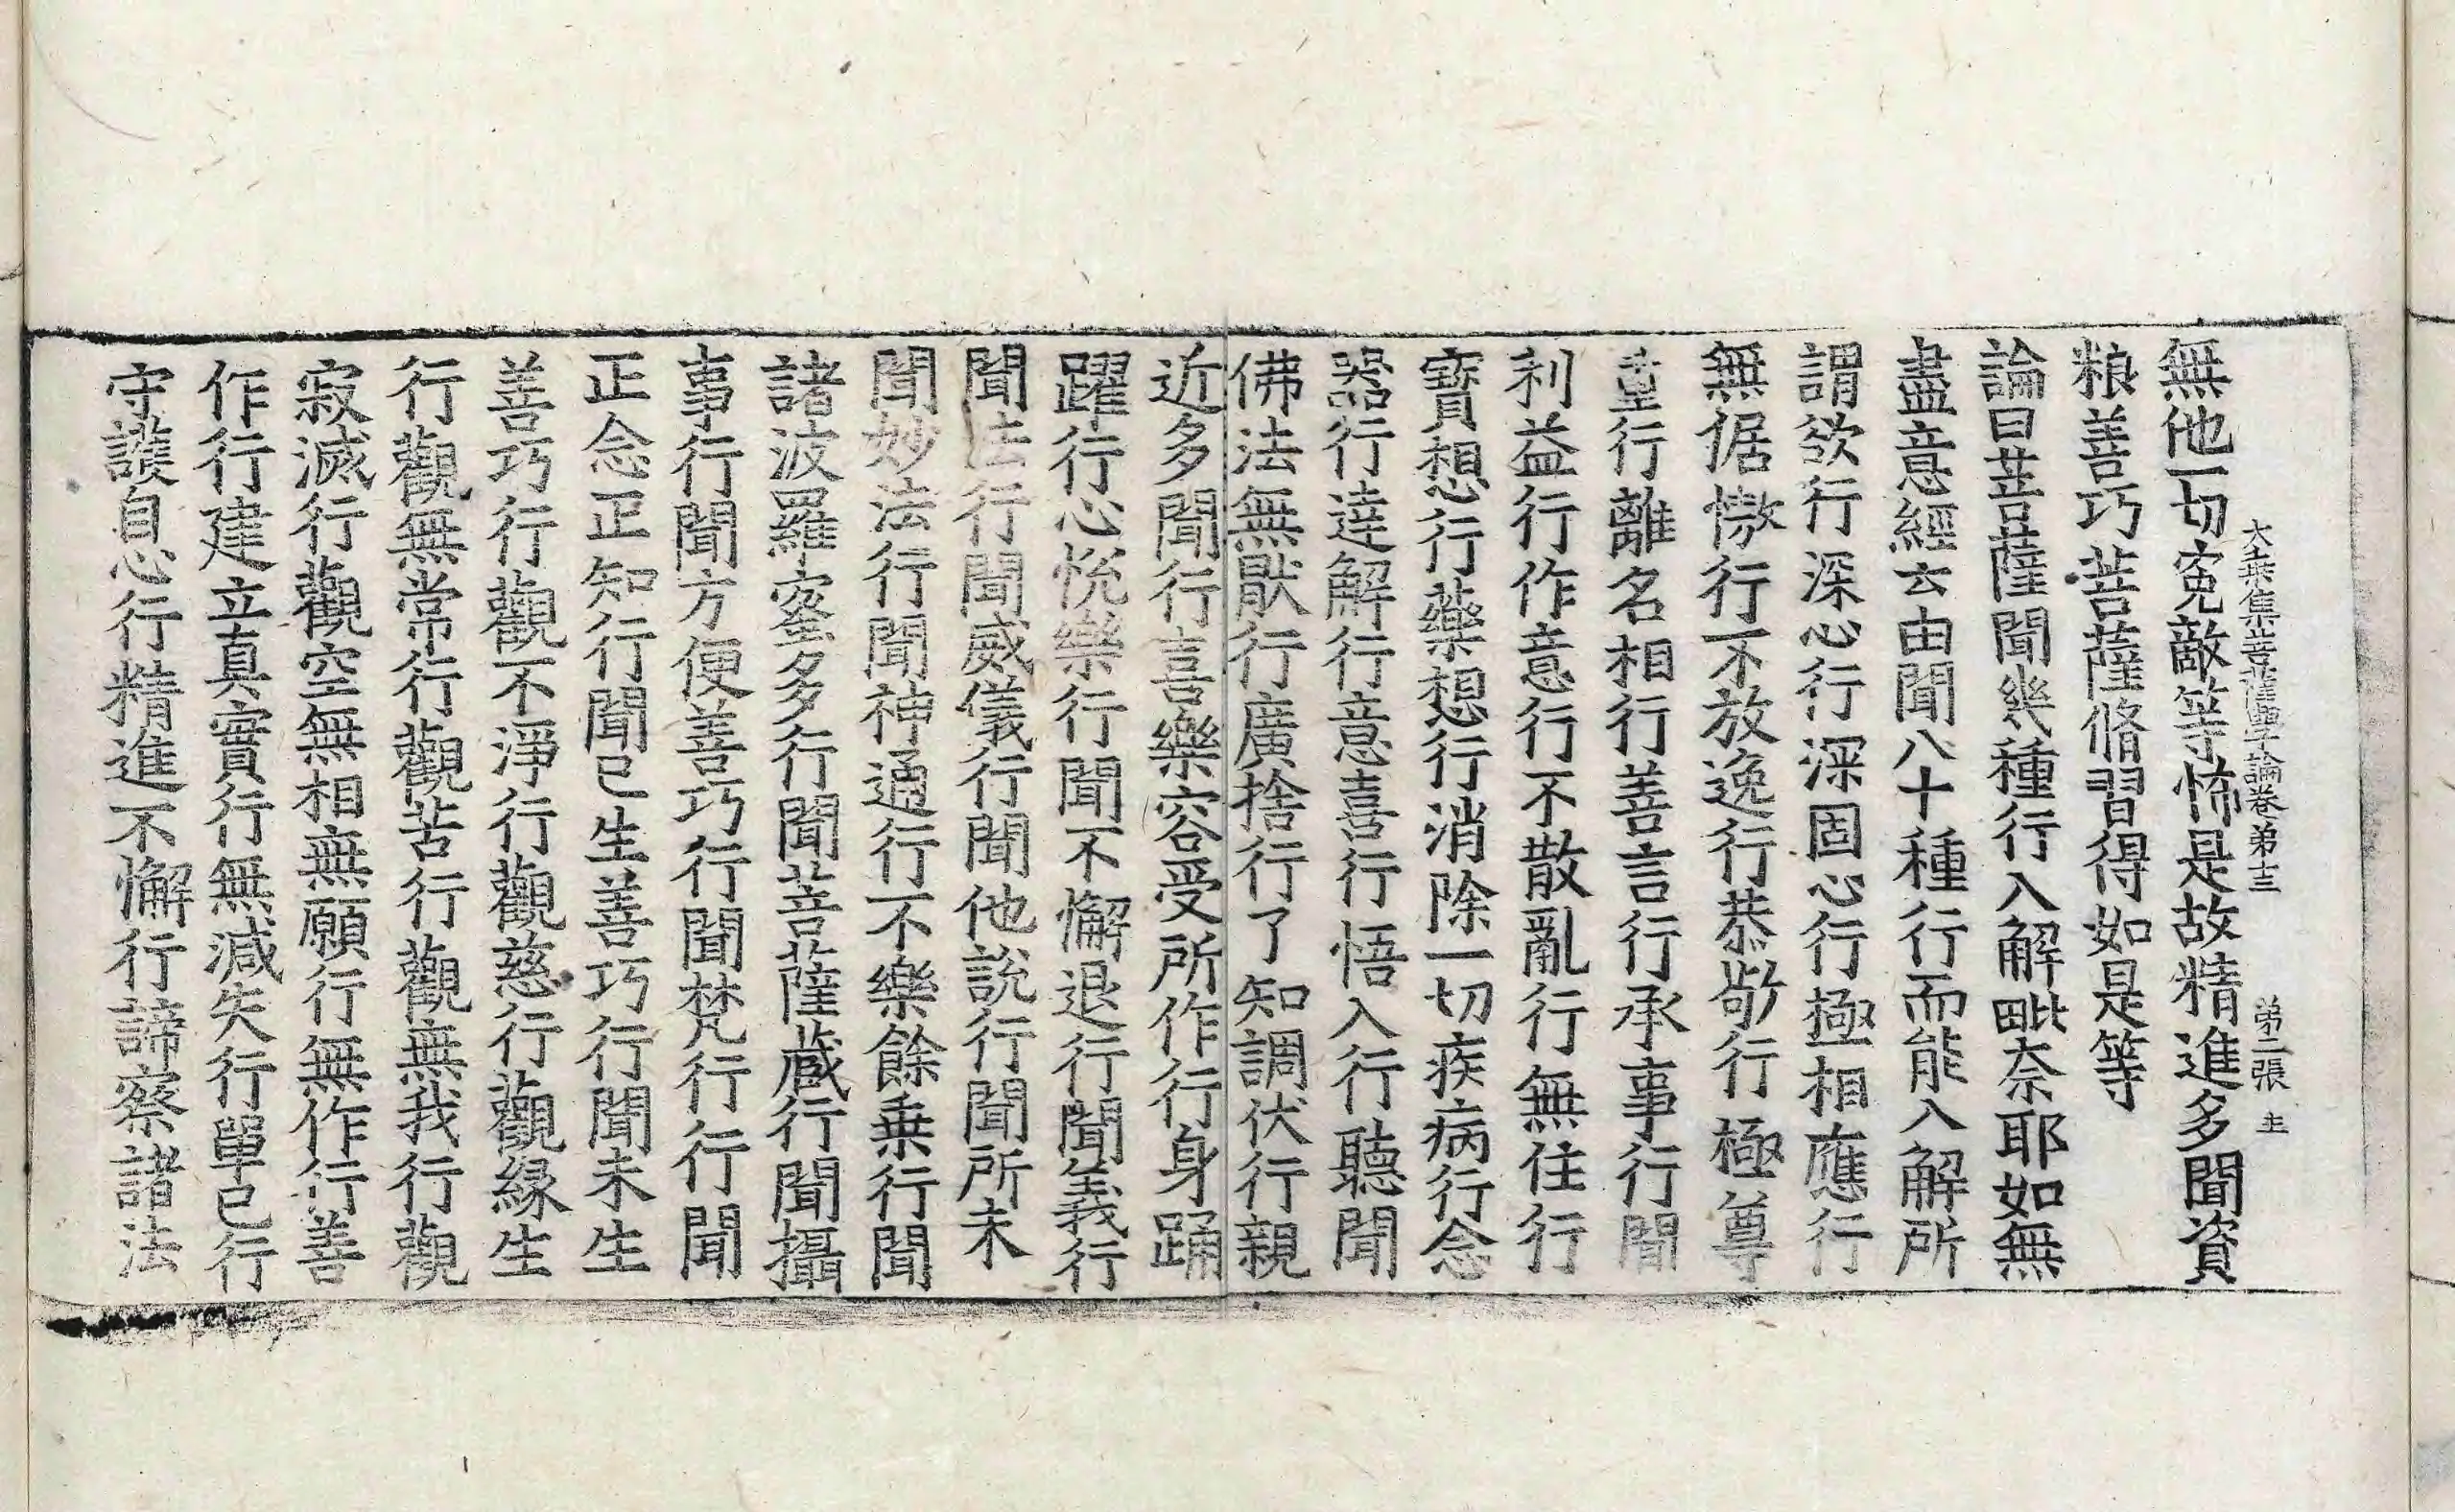 大乗集菩薩學論卷第十三　第二張　主
無他一切寃敵等怖是故精進多聞資
粮善巧菩薩脩習得如是等
論曰菩薩聞幾種行入解毗奈耶如無
盡意經云由聞八十種行而能入解所
謂欲行深心行深固心行極相應行
無倨慠行不放逸行恭敬行極尊
重行離名相行善言行承事行聞
利益行作意行不散亂行無住行
寳想行藥想行消除一切疾病行念
器行達解行意喜行悟入行聽聞
佛法無猒行廣捨行了知調伏行親
近多聞行喜樂容受所作行身踊
躍行心悅樂行聞不懈退行聞義行
聞法行聞威儀行聞他說行聞所未
聞妙法行聞神通行不樂餘乗行聞
諸波羅蜜多行聞菩薩藏行聞攝
事行聞方便善巧行聞梵行行聞
正念正知行聞已生善巧行聞未生
善巧行觀不淨行觀慈行觀緣生
行觀無常行觀苦行觀無我行觀
寂滅行觀空無相無願行無作行善
作行建立真實行無減失行單己行
守護自心行精進不懈行諦察諸法